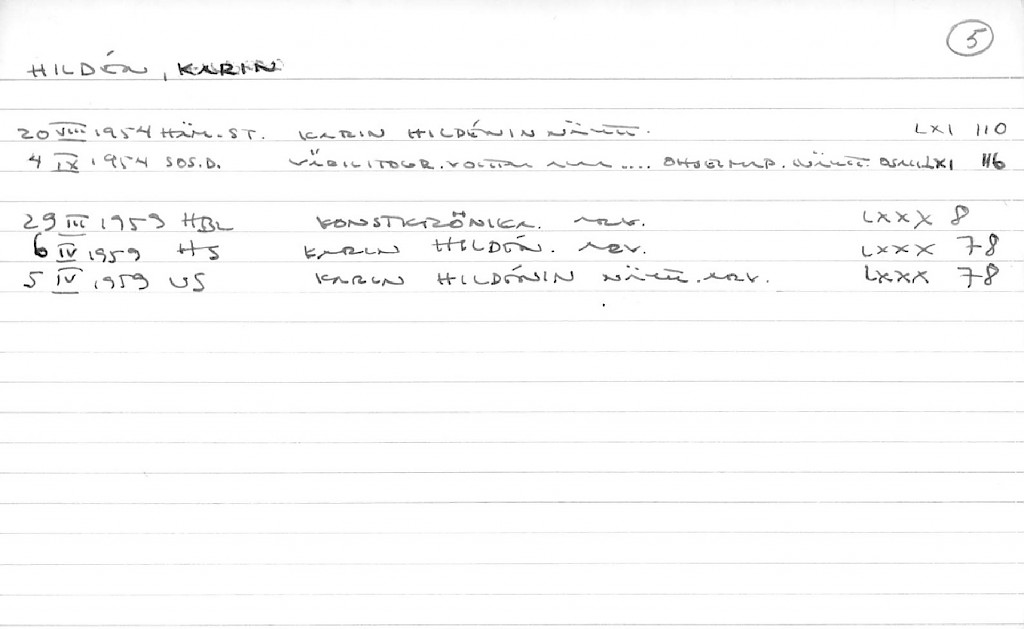 5
HILDÉN, KARIN
20 VIII 1954 HÄM. ST. KARIN HILDÉNIN NÄYTT. LXI 110
4 IX 1954 SOS.D. LXI 116
29 III 1959 HBL KONSTKRÖNIKA. ARV. LXXX 8
6 IV 1959 HS KARIN HILDÉN. ARV. LXXX 78
5 IV 1959 US KARIN HILDÉNIN NÄYTT. ARV. LXXX 78